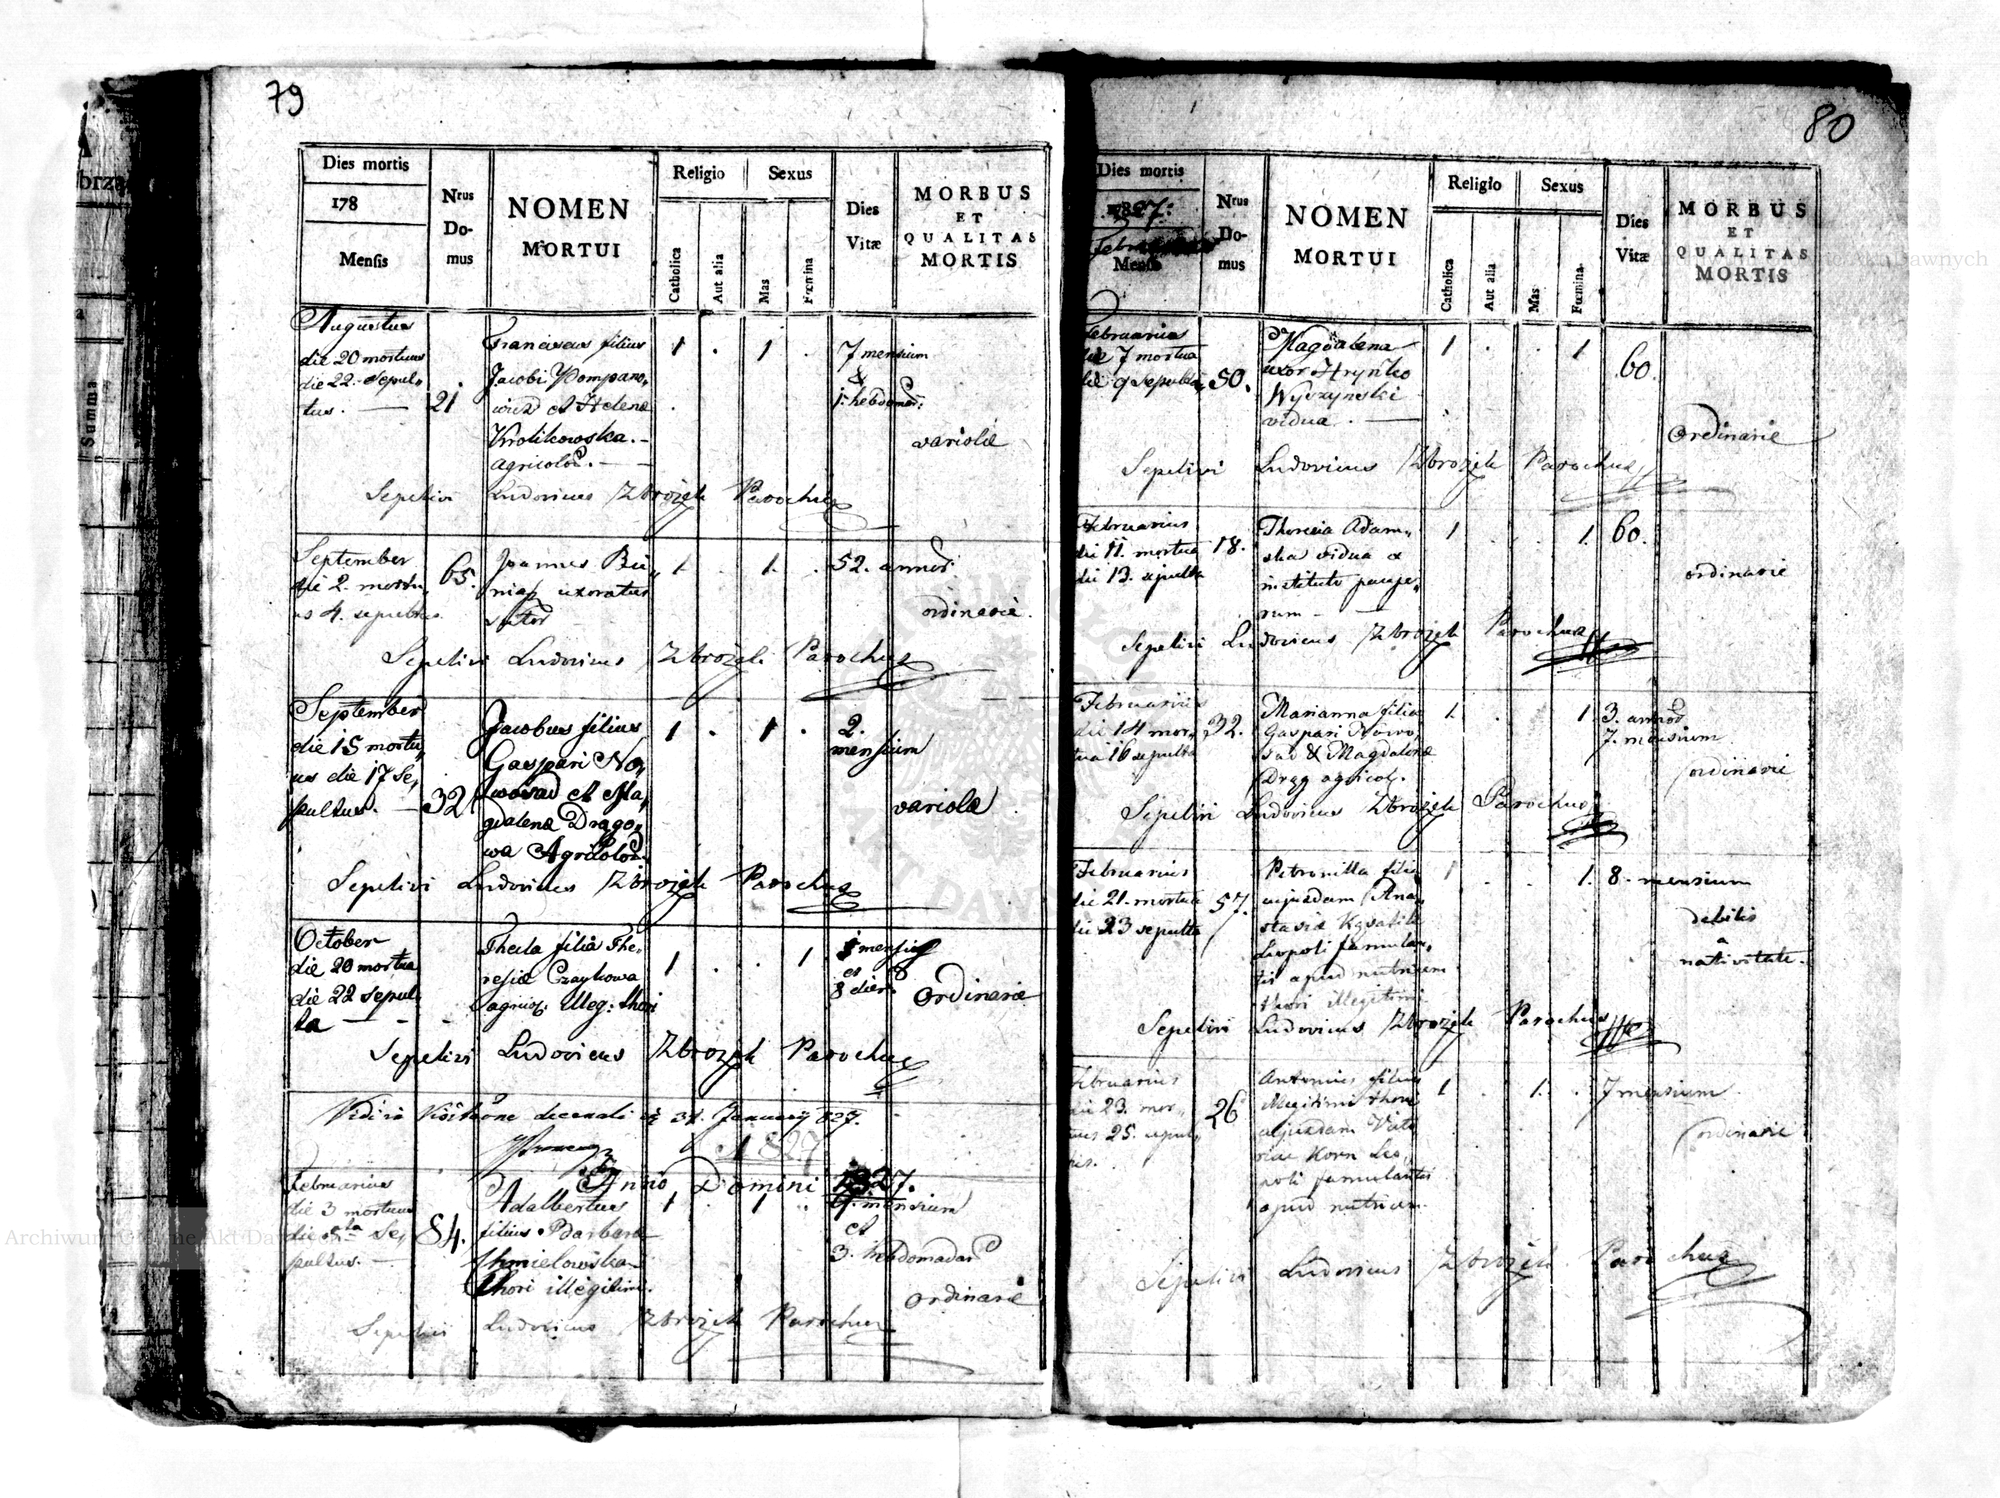 79
Dies mortis
178
Mensis
Nrus
Do-
mus
NOMEN
MORTUI
Religio
Sexus
Catholica
Aut alia
Mas
Fœmina
Dies
Vitæ
MORBUS
ET
QUALITAS
MORTIS
Augustus
die 20 mortuus
die 22. sepul„
tus. —
21
Franciscus filius
Jacobi Pompano„
wicz et Helena
Krolikowska. –
agricolar. –
1 . 1 .
7 mensium
&
1. hebdomad:
variolæ
Sepelivi Ludovicus Zbrożek Parochus
September
die 2. mortu„
us 4. sepultus
65.
Joannes Bu„
niak uxoratus
sutor
1 . 1. .
52. annor
ordinarie.
Sepelivi Ludovicus Zbrożek Parochus
September
die 15 mortu„
us die 17 se„
pultus. —
32
Jacobus filius
Gaspari No„
wosad et Ma„
gdalena Drągo„
wa Agricolar
1 . 1 .
2.
mensium
variolæ
Sepelivi Ludovicus Zbrożek Parochus
October
die 20 mortua
die 22 sepul
ta — - -
Thecla filia The„
resiæ Czaykowa
agricol. illeg: thori
1 . . 1
mensiu
et
8 dier.
Ordinarie
Sepelivi Ludovicus Zbrożek Parochus
Vidi in decanali 31. Januarij 827.
1827
Anno Domini 1827.
Februarius
die 3 mortuus
die 5ta Se„
pultus. —
84.
Adalbertus
filius Barbara
Chmielowska
thori illegitimi.
1 . 1 .
9. mensium
et
3. hebdomadar
ordinarie
Sepelivi Ludovicus Zbrożek Parochus
80
Dies mortis
1827.
Mensis
Nrus
Do-
mus
NOMEN
MORTUI
Religio
Sexus
Catholica
Aut alia
Mas
Fœmina
Dies
Vitæ
MORBUS
ET
QUALITAS
MORTIS
Februarius
die 7 mortua
die 9 sepulta
50.
Magdalena
uxor Hryńko
Wyczynski
vidua. —
1 . . 1
60.
Ordinarie
Sepelivi Ludovicus Zbrożek Parochus
Februarius
die 11. mortua
die 13. sepulta
18.
Theresia Adam„
ska vidua ex
instituto paupe„
rum – —
1 . . 1.
60.
ordinarie
Sepelivi Ludovicus Zbrożek Parochus
Februarius
die 14 mor„
tua 16 sepulta
32.
Marianna filia
Gaspari Nowo„
sad & Magdalena
Drąg agricol.
1. . . 1
3. annor
7. mensium
ordinarie
Sepelivi Ludovicus Zbrożek Parochus
Februarius
die 21. mortua
die 23 sepulta
57.
Petronilla filia
cujusdam Ana„
stasiæ
Leopoli famulan„
tis apud nutricem
thori illegitimi
1 . . 1.
8. mensium
debilis
a
nativitate.
Sepelivi Ludovicus Zbrożek Parochus
Februarius
die 23. mor„
tuus 25. sepul„
tus.
26
Antonius filius
illegitimi thori
cujusdam Victo
riæ Korn Leo„
poli famulantis
apud nutricem
1 . 1. .
7 mensium
ordinarie
Sepelivi Ludovicus Zbrożek Parochus
Summa